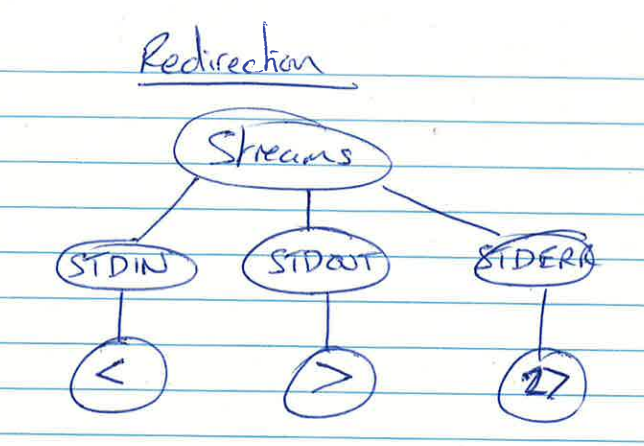 Redirection
Streams
STDIN STDOUT STDERR
< > 2>